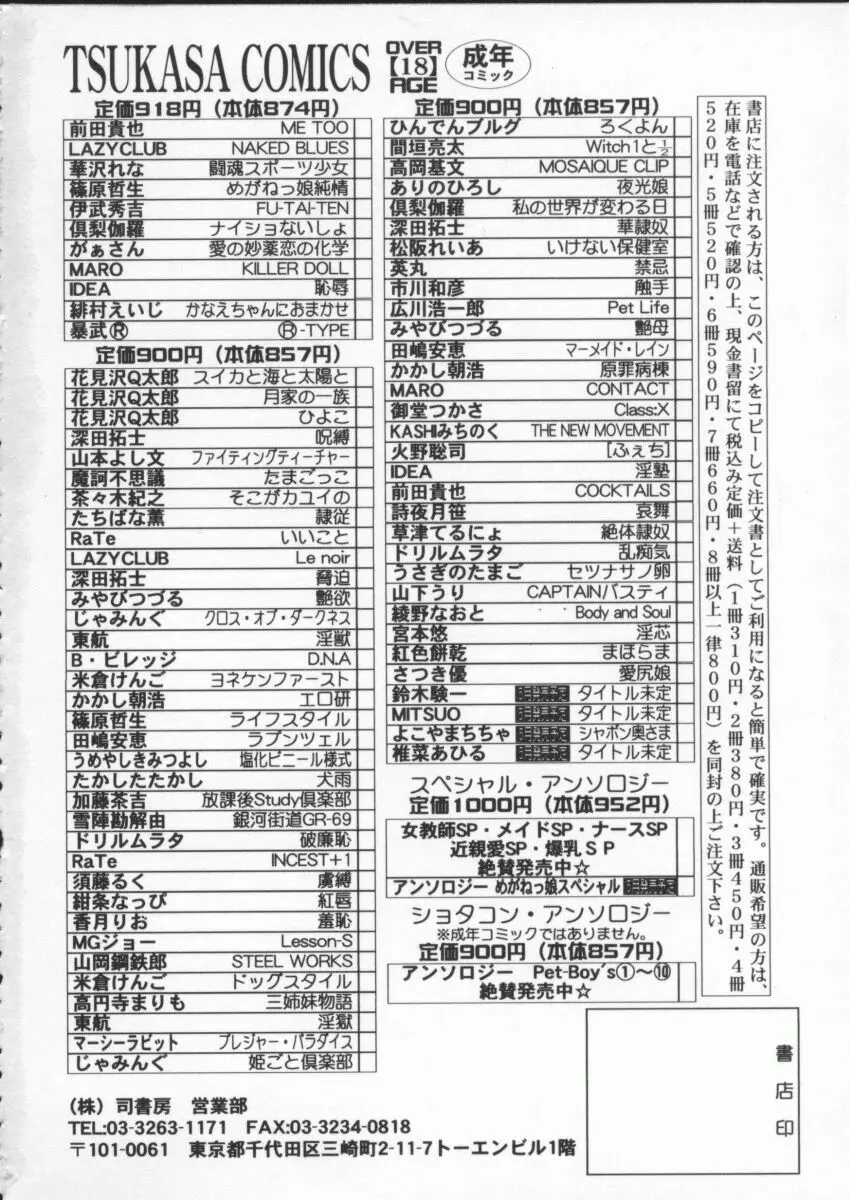 TSUKASA COMICS
OVER
【18】
AGE
成年
コミック
定価918円（本体874円）
前田貴也 ME TOO
LAZYCLUB NAKED BLUES
華沢れな 闘魂スポーツ少女
篠原哲生 めがねっ娘純情
伊武秀吉 FU-TAI-TEN
倶梨伽羅 ナイショないしょ
がぁさん 愛の妙薬恋の化学
MARO KILLER DOLL
IDEA 恥辱
緋村えいじ かなえちゃんにおまかせ
暴武Ⓡ Ⓡ-TYPE
定価900円（本体857円）
花見沢Q太郎 スイカと海と太陽と
花見沢Q太郎 月家の一族
花見沢Q太郎 ひよこ
深田拓士 呪縛
山本よし文 ファイティングティーチャー
魔訶不思議 たまごっこ
茶々木紀之 そこがカユイの
たちばな薫 隷従
RaTe いいこと
LAZYCLUB Le noir
深田拓士 脅迫
みやびつづる 艶欲
じゃみんぐ クロス・オブ・ダークネス
東航 淫獣
B・ビレッジ D.N.A
米倉けんご ヨネケンファースト
かかし朝浩 エロ研
篠原哲生 ライフスタイル
田嶋安恵 ラプンツェル
うめやしきみつよし 塩化ビニール様式
たかしたたかし 犬雨
加藤茶吉 放課後Study倶楽部
雪陣勘解由 銀河街道GR-69
ドリルムラタ 破廉恥
RaTe INCEST+1
須藤るく 虜縛
紺条なっぴ 紅唇
香月りお 羞恥
MGジョー Lesson-S
山岡鋼鉄郎 STEEL WORKS
米倉けんご ドッグスタイル
高円寺まりも 三姉妹物語
東航 淫獄
マーシーラビット プレジャー・パラダイス
じゃみんぐ 姫ごと倶楽部
定価900円（本体857円）
ひんでんブルグ ろくよん
間垣亮太 Witch1と½
高岡基文 MOSAIQUE CLIP
ありのひろし 夜光娘
倶梨伽羅 私の世界が変わる日
深田拓士 華隷奴
松阪れいあ いけない保健室
英丸 禁忌
市川和彦 触手
広川浩一郎 Pet Life
みやびつづる 艶母
田嶋安恵 マーメイド・レイン
かかし朝浩 原罪病棟
MARO CONTACT
御堂つかさ Class:X
KASHIみちのく THE NEW MOVEMENT
火野聡司 [ふぇち]
IDEA 淫塾
前田貴也 COCKTAILS
詩夜月笹 哀舞
草津てるにょ 絶体隷奴
ドリルムラタ 乱痴気
うさぎのたまご セツナサノ卵
山下うり CAPTAINバスティ
綾野なおと Body and Soul
宮本悠 淫芯
紅色餅乾 まほらま
さつき優 愛尻娘
鈴木験一 タイトル未定
MITSUO タイトル未定
よこやまちちゃ シャボン奥さま
椎菜あひる タイトル未定
スペシャル・アンソロジー
定価1000円（本体952円）
女教師SP・メイドSP・ナースSP
近親愛SP・爆乳ＳＰ
絶賛発売中☆
アンソロジー めがねっ娘スペシャル
ショタコン・アンソロジー
※成年コミックではありません。
定価900円（本体857円）
アンソロジー Pet-Boy's①～⑩
絶賛発売中☆
書店に注文される方は、このページをコピーして注文書としてご利用になると簡単で確実です。通販希望の方は、
在庫を電話などで確認の上、現金書留にて税込み定価＋送料（１冊310円・２冊380円・３冊450円・４冊
520円・５冊520円・６冊590円・７冊660円・８冊以上一律800円）を同封の上ご注文下さい。
書店印
（株）司書房 営業部
TEL:03-3263-1171 FAX:03-3234-0818
〒101-0061 東京都千代田区三崎町2-11-7トーエンビル1階